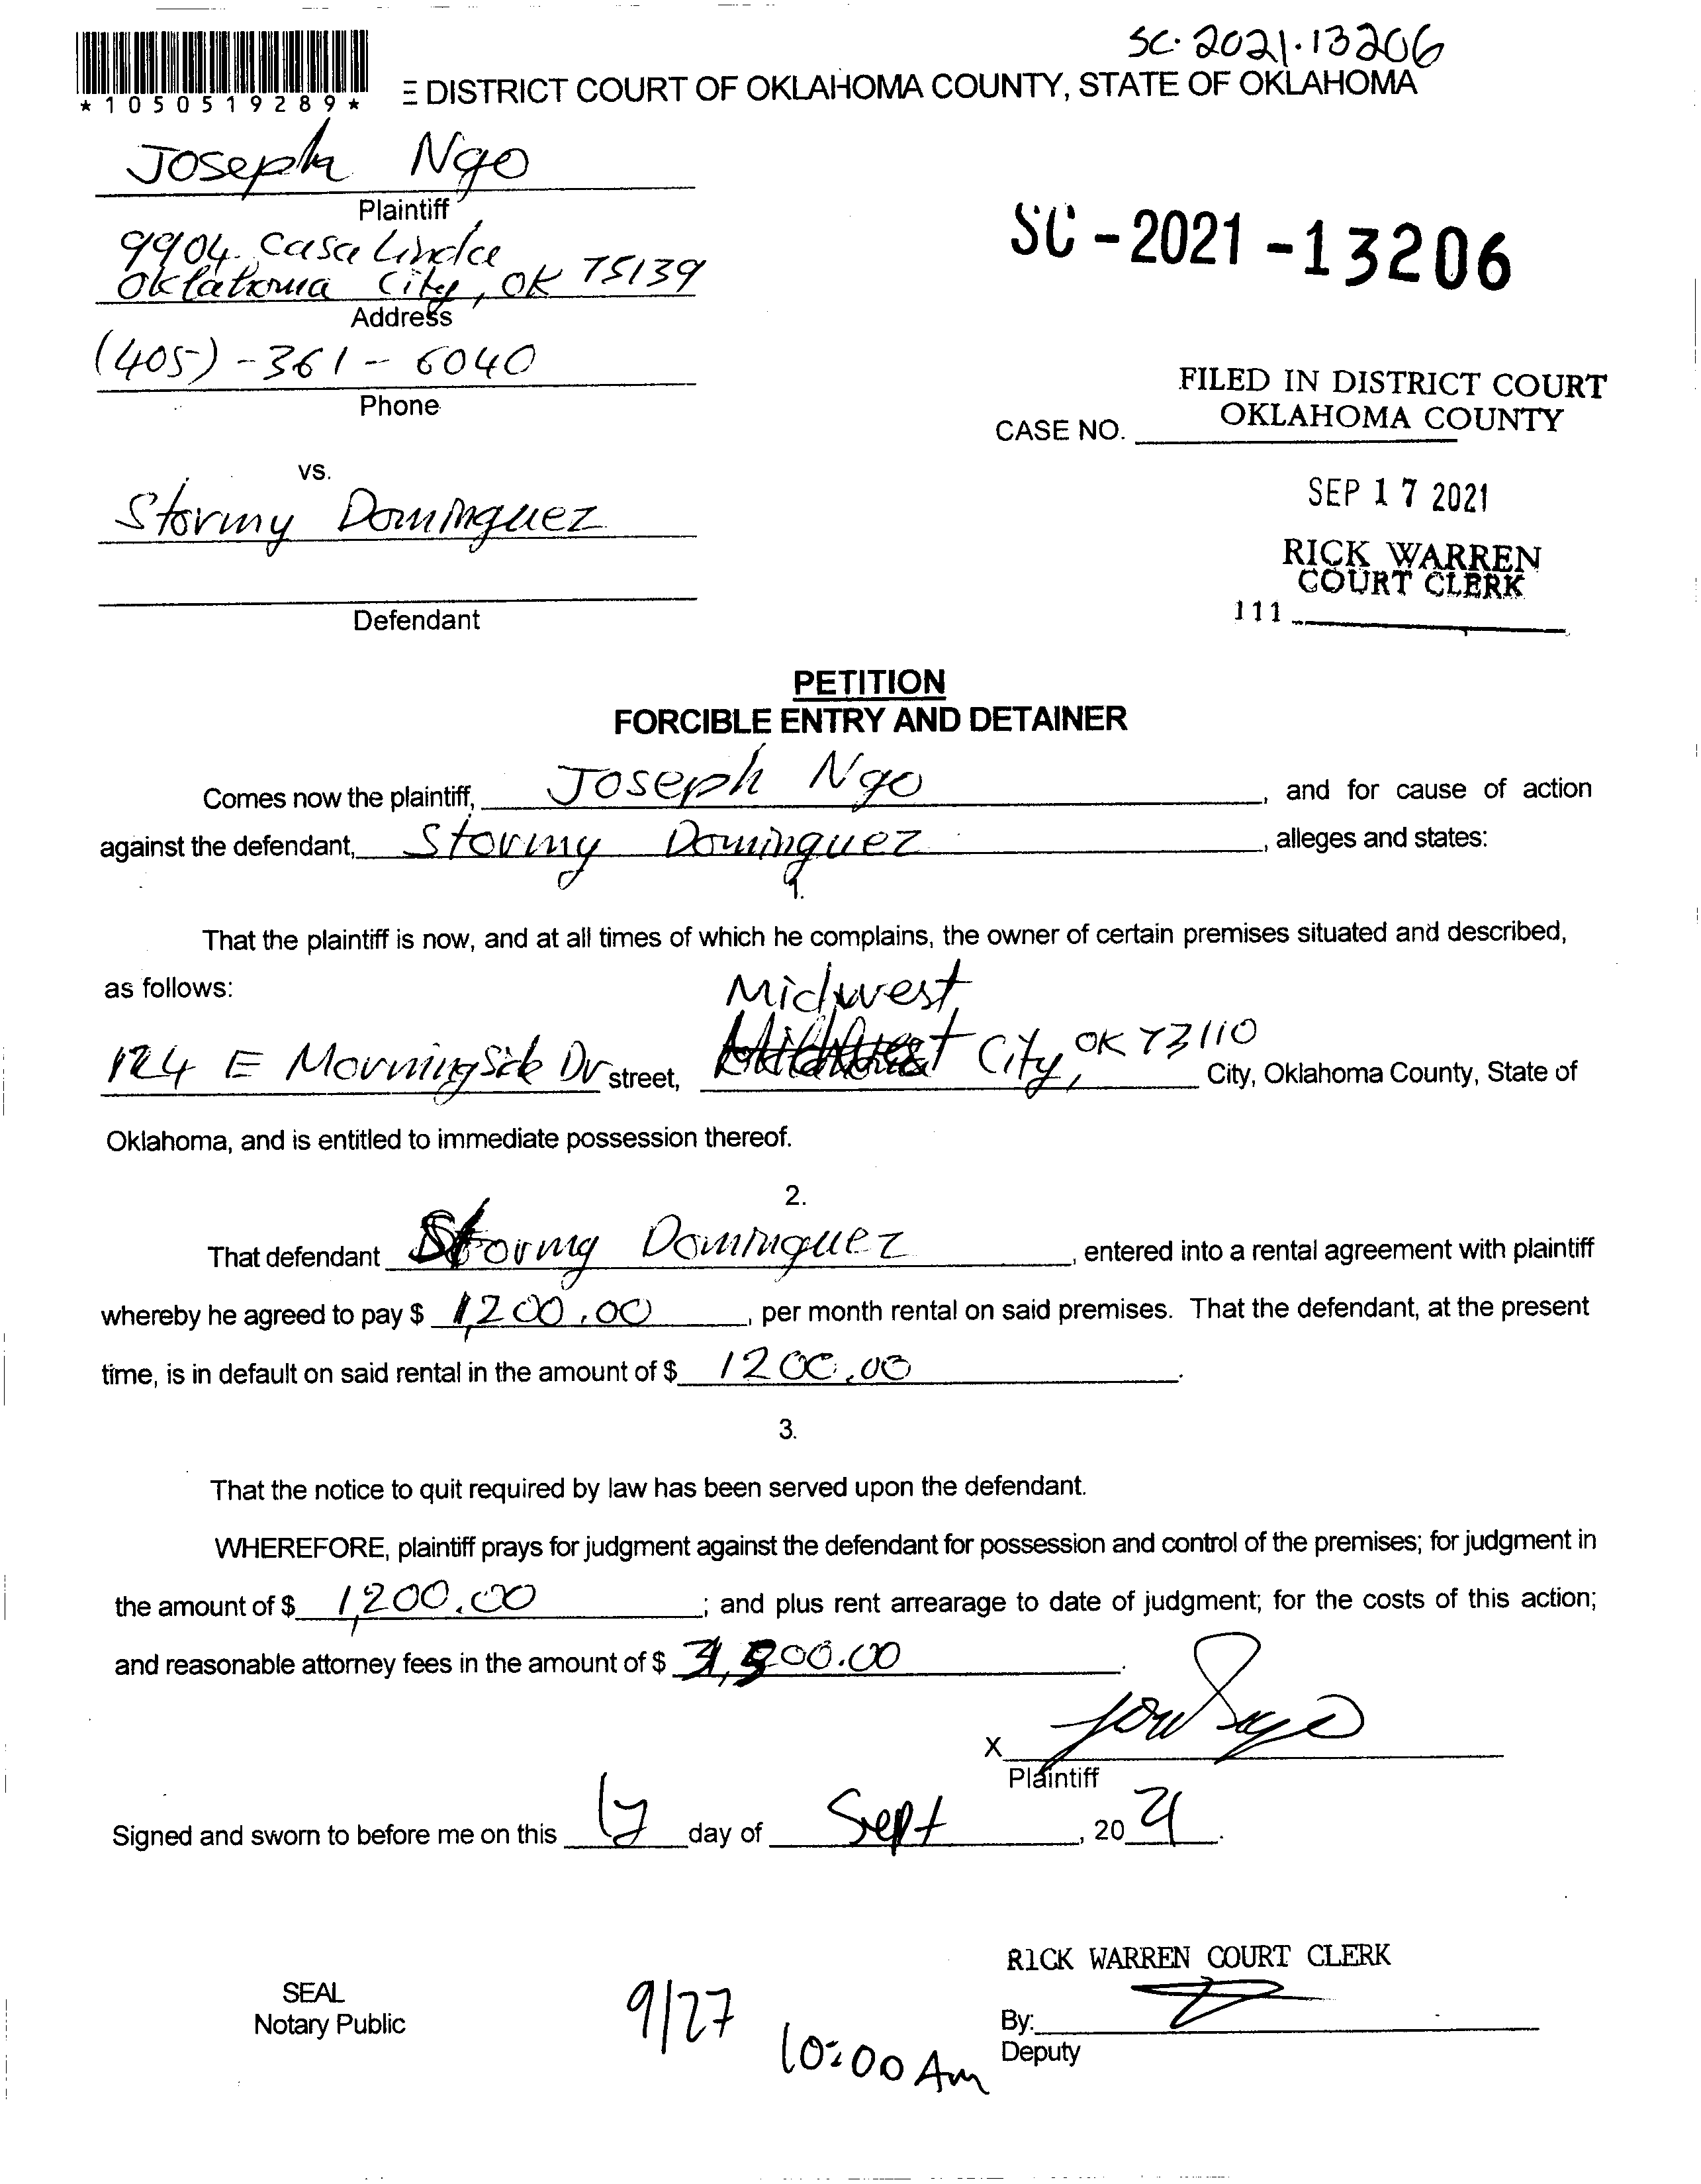 SC·2021·13206
*1050519289*
E DISTRICT COURT OF OKLAHOMA COUNTY, STATE OF OKLAHOMA
Joseph Ngo
Plaintiff
9904 Casa Linda
Oklahoma City, OK 75139
Address
(405)-361-6040
Phone
SC-2021-13206
FILED IN DISTRICT COURT
OKLAHOMA COUNTY
CASE NO.
vs.
Stormy Dominguez
Defendant
SEP 17 2021
RICK WARREN
COURT CLERK
111
PETITION
FORCIBLE ENTRY AND DETAINER
Comes now the plaintiff, Joseph Ngo, and for cause of action
against the defendant, Stormy Dominguez, alleges and states:
1.
That the plaintiff is now, and at all times of which he complains, the owner of certain premises situated and described,
as follows:
Midwest
124 E Morningside Dr street, City, OK 73110 City, Oklahoma County, State of
Oklahoma, and is entitled to immediate possession thereof.
2.
That defendant Stormy Dominguez, entered into a rental agreement with plaintiff
whereby he agreed to pay $ 1,200.00, per month rental on said premises. That the defendant, at the present
time, is in default on said rental in the amount of $ 1200.00.
3.
That the notice to quit required by law has been served upon the defendant.
WHEREFORE, plaintiff prays for judgment against the defendant for possession and control of the premises; for judgment in
the amount of $ 1,200.00; and plus rent arrearage to date of judgment; for the costs of this action;
and reasonable attorney fees in the amount of $ .
X
Plaintiff
Signed and sworn to before me on this 17 day of Sept, 20 21.
RICK WARREN COURT CLERK
SEAL
Notary Public
9/27
10:00 Am
By:
Deputy